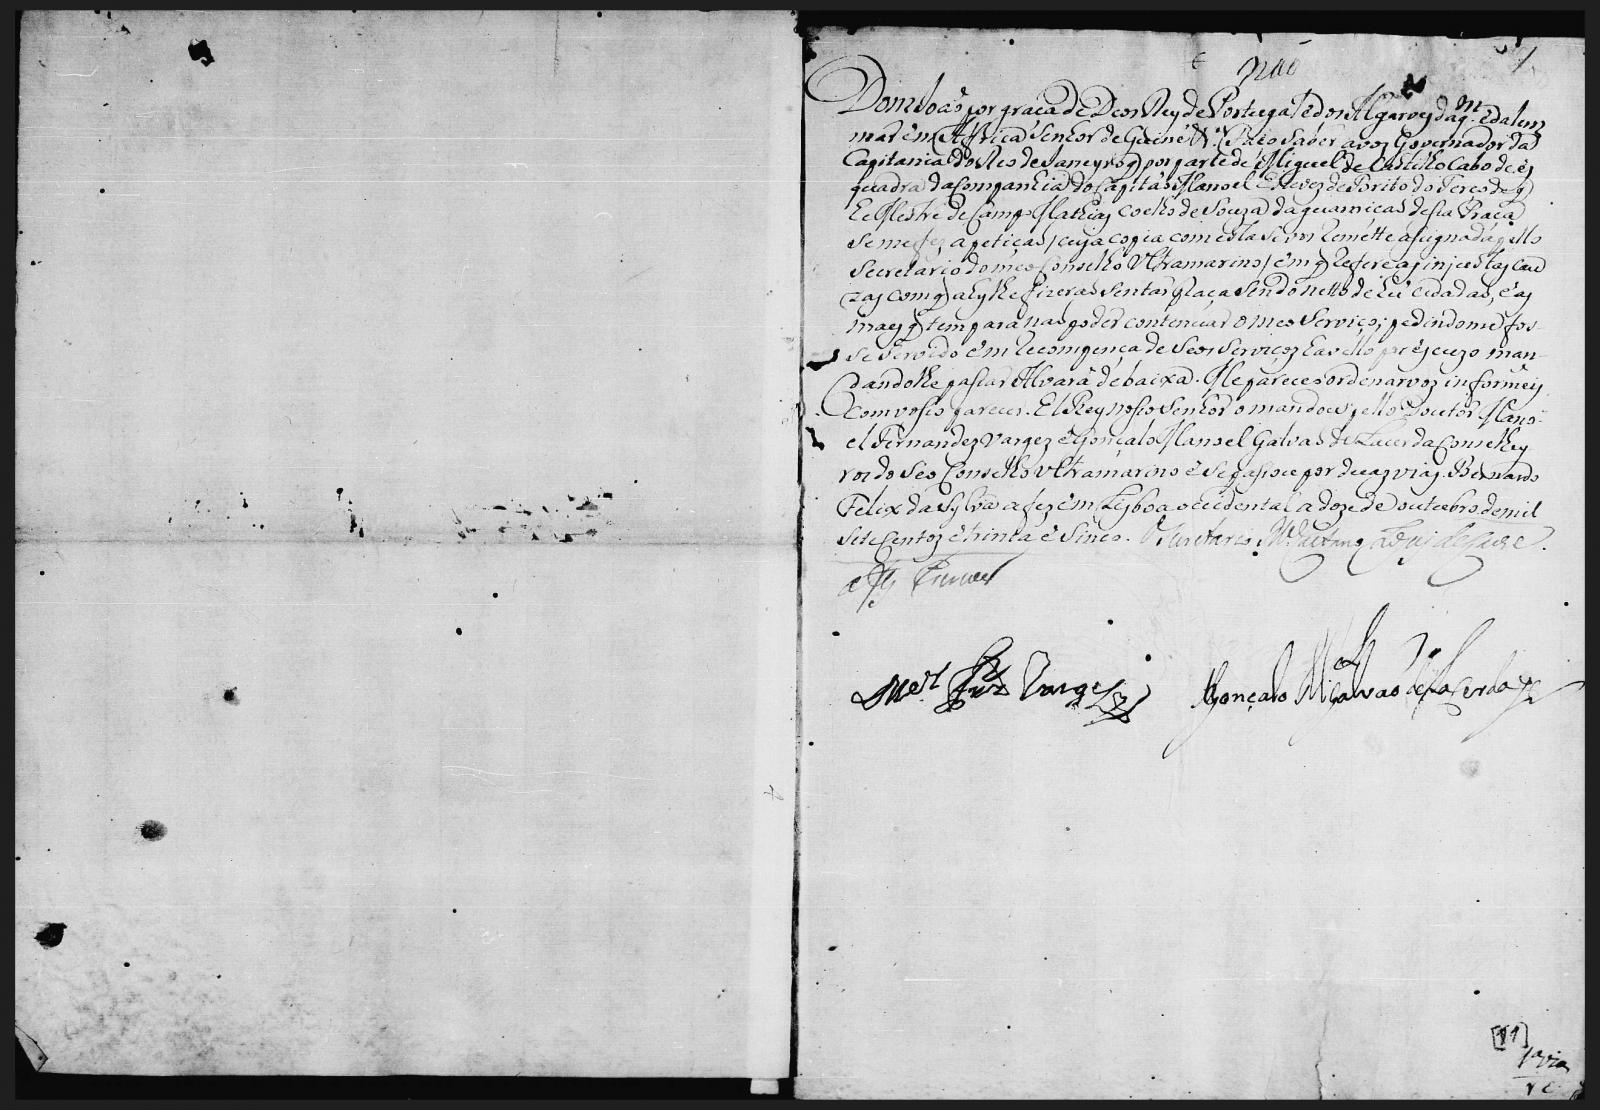 não
Dom João por graça de Deos Rey de Portugal e dos Algarves daq.m e dalem
mar em Africa senhor de Guiné &.ª Faço saber avoz Governador da
Capitania do Rio de Janeyro q por parte de Miguel de Castilho Cabo de es
quadra da Companhia do Capitão Manoel Esteves de Brito do Terço de q
he Mestre de Campo Mathias Coelho de Souza da guarniçaõ desta Praça
se me fez a petiçaõ, cuja copia com esta se vos remette asignada pello
secretario do meo Conselho Vltramarino, em q refere as injustas cau
zas com q ahy lhe fizeraõ sentar praça sendo netto de hu' Cidadaõ, e as
mais q tem para naõ poder contenuar o meo serviço; pedindome fos-
se servido em recompença de seos serviços havello por escuzo man-
dandolhe passar Alvará de baixa. Me pareceo ordenarvoz informeis
com vosso parecer. El Rey nosso senhor o mandou pello Doutor Mano-
el Fernandez Vargez e Gonçalo Manoel Galvaõ de Lacerda Conselhey
ros do seo Conselho Vltramarino e se passou por duas vias. Bernardo
Felix da Sylva a fez em Lixboa occidental a doze de outubro de mil
sete centos e trinta e sinco. O secretario M.el Caetano Lopes de Lavre
a fis escrever
M.el Frz Vargez
Gonçalo M.el Galvaõ de Lacerda
1ª via